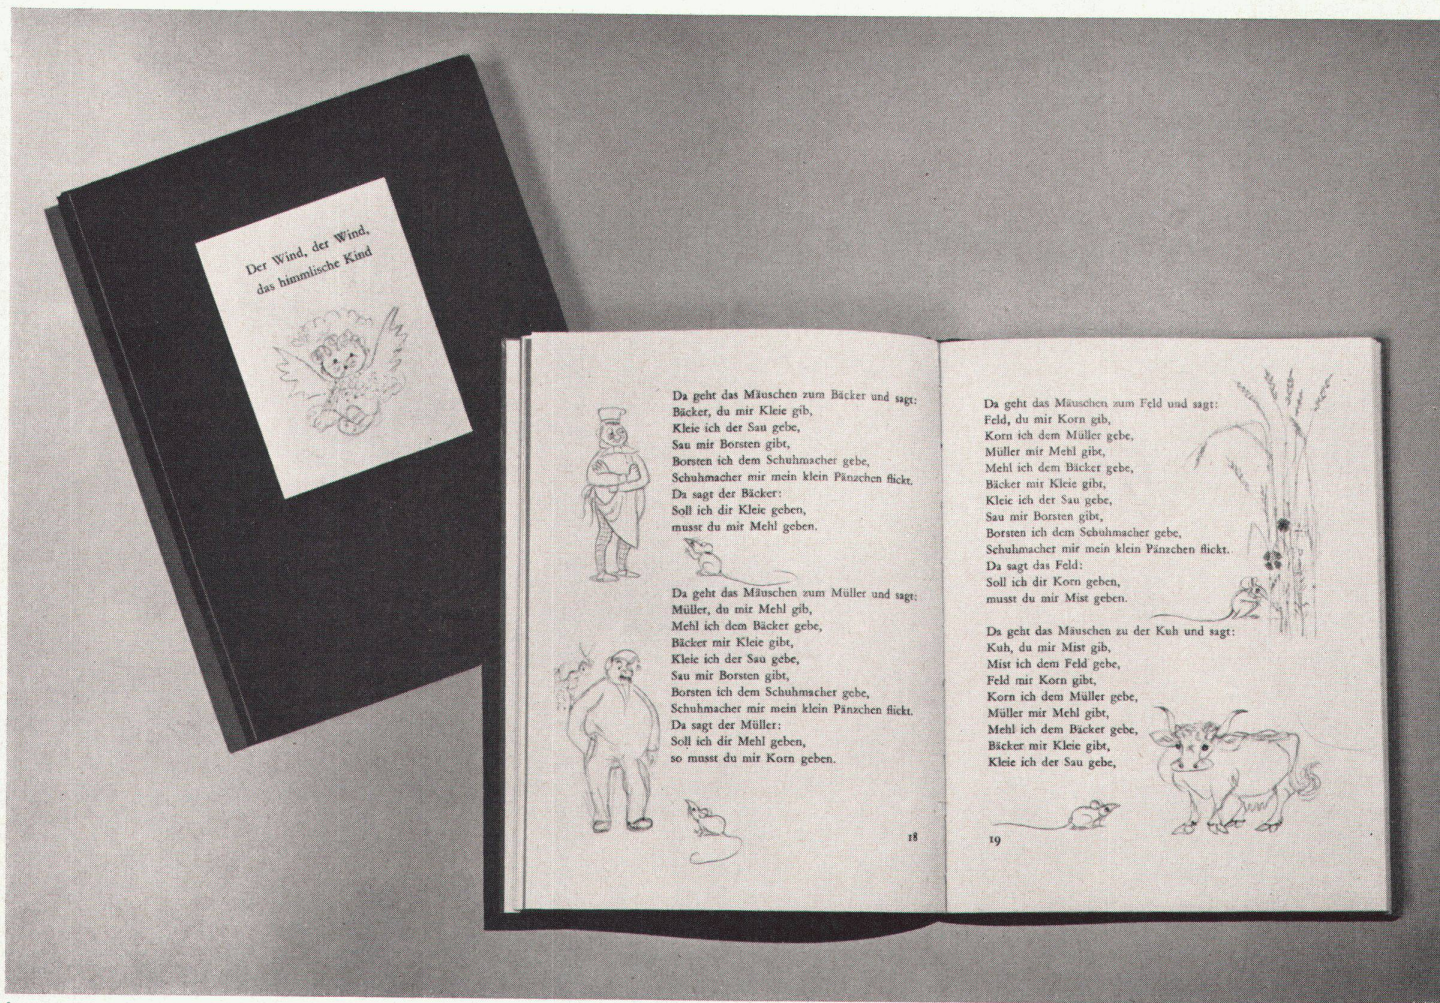 Der Wind, der Wind,
das himmlische Kind
Da geht das Mäuschen zum Bäcker und sagt:
Bäcker, du mir Kleie gib,
Kleie ich der Sau gebe,
Sau mir Borsten gibt,
Borsten ich dem Schuhmacher gebe,
Schuhmacher mir mein klein Pänzchen flickt.
Da sagt der Bäcker:
Soll ich dir Kleie geben,
musst du mir Mehl geben.
Da geht das Mäuschen zum Müller und sagt:
Müller, du mir Mehl gib,
Mehl ich dem Bäcker gebe,
Bäcker mir Kleie gibt,
Kleie ich der Sau gebe,
Sau mir Borsten gibt,
Borsten ich dem Schuhmacher gebe,
Schuhmacher mir mein klein Pänzchen flickt.
Da sagt der Müller:
Soll ich dir Mehl geben,
so musst du mir Korn geben.
18
Da geht das Mäuschen zum Feld und sagt:
Feld, du mir Korn gib,
Korn ich dem Müller gebe,
Müller mir Mehl gibt,
Mehl ich dem Bäcker gebe,
Bäcker mir Kleie gibt,
Kleie ich der Sau gebe,
Sau mir Borsten gibt,
Borsten ich dem Schuhmacher gebe,
Schuhmacher mir mein klein Pänzchen flickt.
Da sagt das Feld:
Soll ich dir Korn geben,
musst du mir Mist geben.
Da geht das Mäuschen zu der Kuh und sagt:
Kuh, du mir Mist gib,
Mist ich dem Feld gebe,
Feld mir Korn gibt,
Korn ich dem Müller gebe,
Müller mir Mehl gibt,
Mehl ich dem Bäcker gebe,
Bäcker mir Kleie gibt,
Kleie ich der Sau gebe,
19